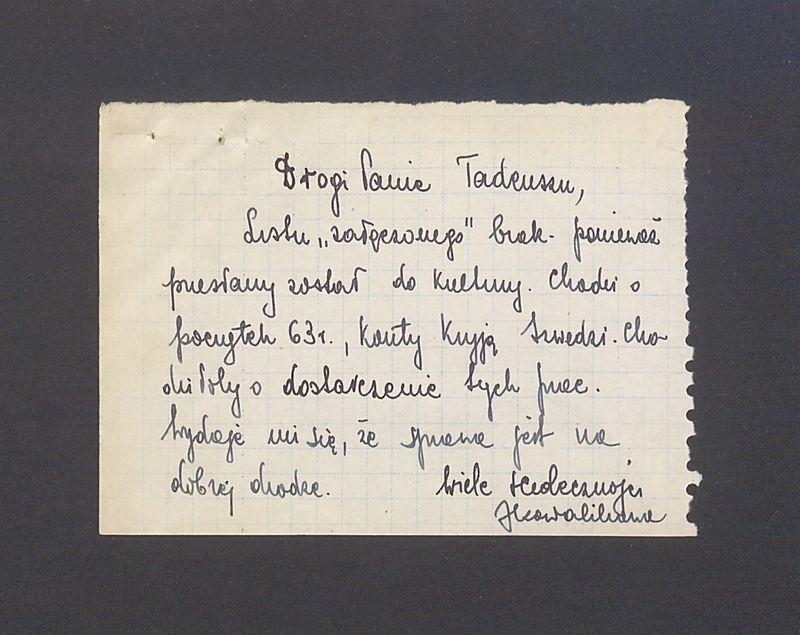 Drogi Panie Tadeuszu,
Listu „załączonego" brak - ponieważ
przesłany został do Kultury. Chodzi o
początek 63 r., koszty kryją Szwedzi. Cho-
dziłoby o dostarczenie tych prac.
Wydaje mi się, że sprawa jest na
dobrej drodze. Wiele serdeczności